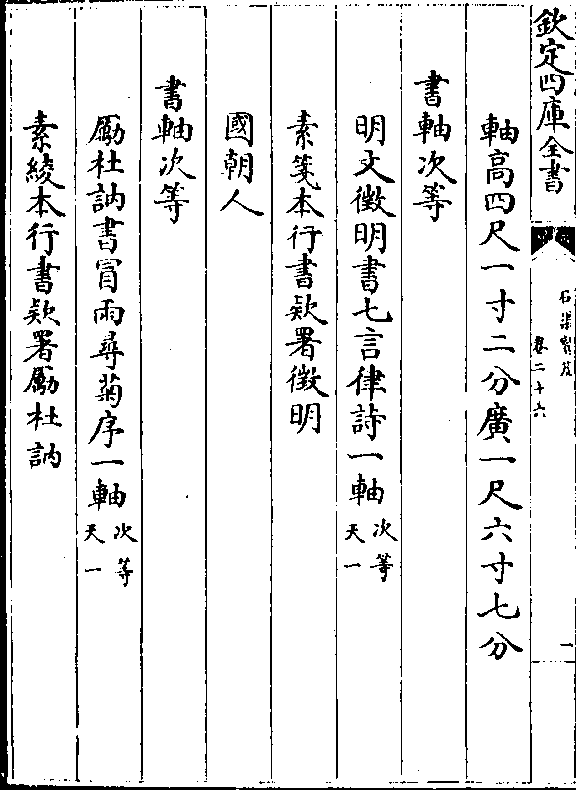 欽定四庫全書
石渠寶笈
卷二十六
一
軸高四尺一寸二分廣一尺六寸七分
書軸次等
明文徵明書七言律詩一軸次等天一
素箋本行書款署徵明
國朝人
書軸次等
勵杜訥書冒雨尋菊序一軸次等天一
素綾本行書款署勵杜訥